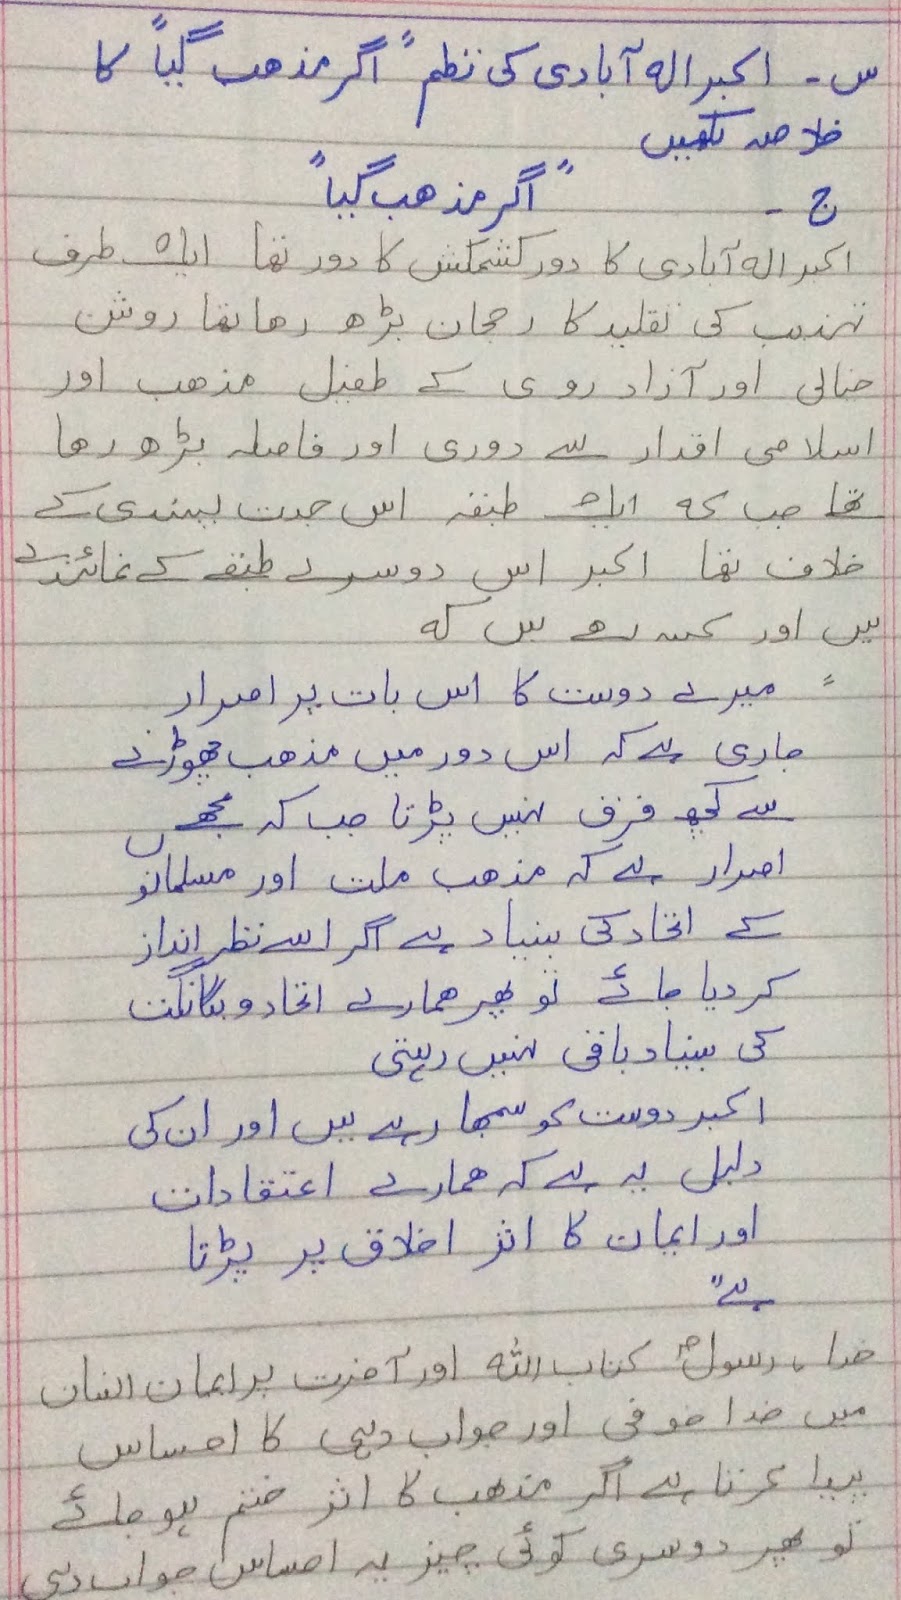 س۔ اکبر الہ آبادی کی نظم "اگر مذھب گیا" کا
خلاصہ لکھیں
ج۔ "اگر مذھب گیا"
اکبر الہ آبادی کا دور کشمکش کا دور تھا ایک طرف
تہذیب کی تقلید کا رجحان بڑھ رھا تھا روشن
خیالی اور آزاد روی کے طفیل مذھب اور
اسلامی اقدار سے دوری اور فاصلہ بڑھ رھا
تھا جب کہ ایک طبقہ اس جدت پسندی کے
خلاف تھا اکبر اس دوسرے طبقے کے نمائندے
ہیں اور کہہ رھے ہیں کہ
"میرے دوست کا اس بات پر اصرار
جاری ہے کہ اس دور میں مذھب چھوڑنے
سے کچھ فرق نہیں پڑتا جب کہ مجھے
اصرار ہے کہ مذھب ملت اور مسلمانوں
کے اتحاد کی بنیاد ہے اگر اسے نظر انداز
کر دیا جائے تو پھر ھمارے اتحاد و یگانگت
کی بنیاد باقی نہیں رہتی
اکبر دوست کو سمجھا رہے ہیں اور ان کی
دلیل یہ ہے کہ ھمارے اعتقادات
اور ایمان کا اثر اخلاق پر پڑتا
ہے"
خدا، رسولؐ کتاب اللہ اور آخرت پر ایمان انسان
میں خدا خوفی اور جواب دہی کا احساس
پیدا کرتا ہے اگر مذھب کا اثر ختم ہو جائے
تو پھر دوسری کوئی چیز یہ احساس جواب دہی